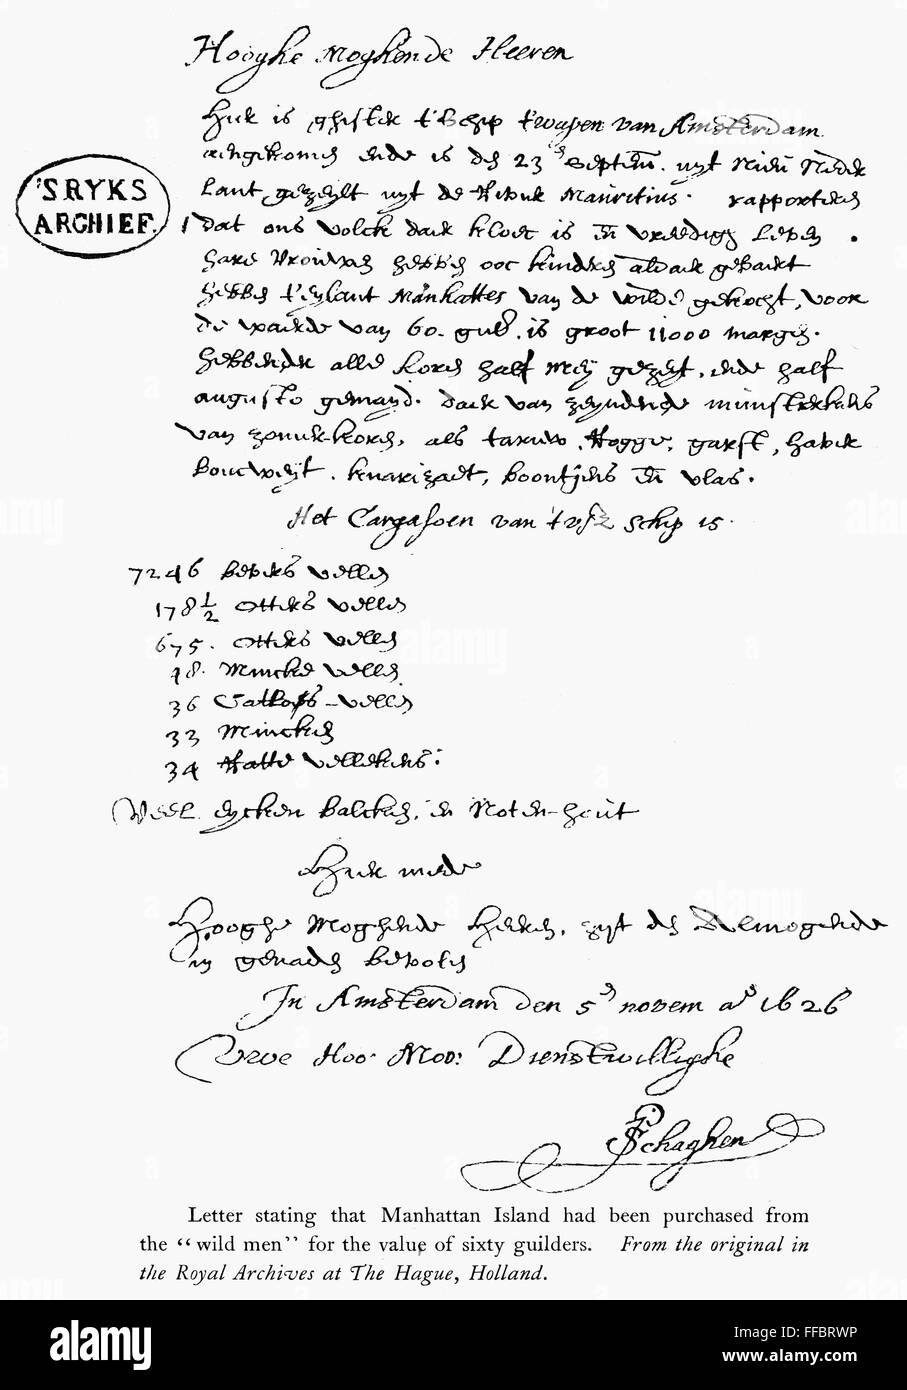 Hooghe Moghende Heeren
Hier is ghister t'Schip t'wapen van Amsterdam
aengekomen ende is den 23en septem. uyt Nieu Neder
lant gezeylt uyt de Rivier Mauritius. rapporteren
dat ons volck daer kloec is en vreedigh leven
hare Vrouwen hebben ooc kinders aldaer gebaert
hebben t'eylant Manhattes van de wilde gekocht, voor
de waerde van 60. gul. is groot 11000 morgen.
hebbende alle koren half Mey gezeyt, ende half
augusto gemayd. daer van zeynden munsterkens
van zomerkoren, als taruw, Rogge, garst, haver
boucweyt, knarizaet, boontjens en vlas.
'S RYKS
ARCHIEF.
Het Cargasoen van 'tvsz schip is.
7246 bevers vellen
178½ otters vellen
675. otters vellen
48. Mincke vellen
36 Catloes vellen
33 Mincken
34 Ratte vellekens.
Veel eycken balcken, en Noten-hout
Hier mede
Hooghe Moghende Heeren, zyt den Almogende
in genaden bevolen
In Amsterdam den 5en novem ao 1626
Uwe Hoo. Moo: Dienstwillighe
P Schaghen
Letter stating that Manhattan Island had been purchased from
the "wild men" for the value of sixty guilders. From the original in
the Royal Archives at The Hague, Holland.
alamy
Image ID: FFBRWP
www.alamy.com